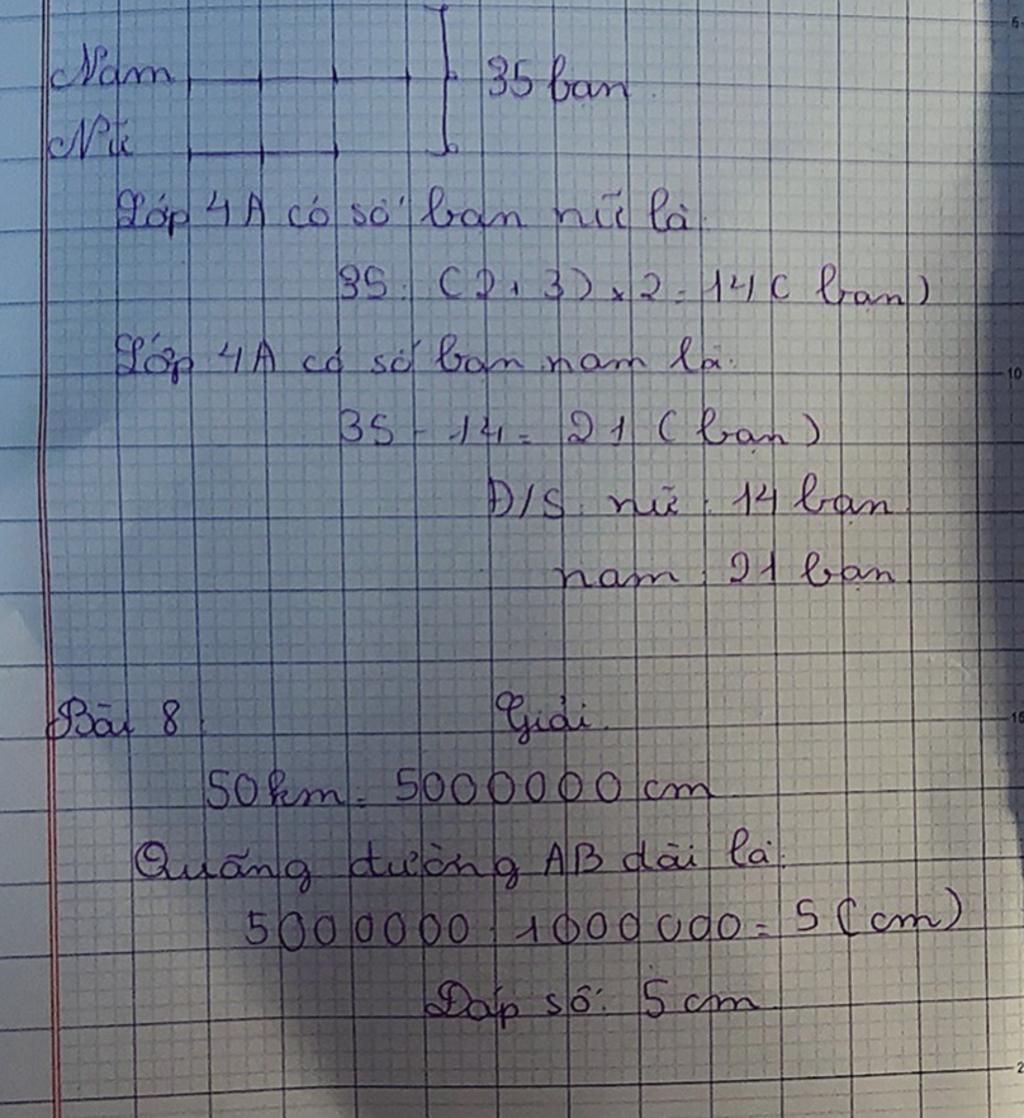 Nam 35 bạn
Nữ
Lớp 4A có số bạn nữ là:
35 : (2 + 3) x 2 = 14 ( bạn )
Lớp 4A có số bạn nam là:
35 - 14 = 21 ( bạn )
Đ/S: nữ : 14 bạn
nam : 21 bạn
Bài 8 Giải
50km = 5000000 cm
Quãng đường AB dài là:
5000000 : 1000000 = 5 (cm)
Đáp số: 5 cm
5
10
15
2